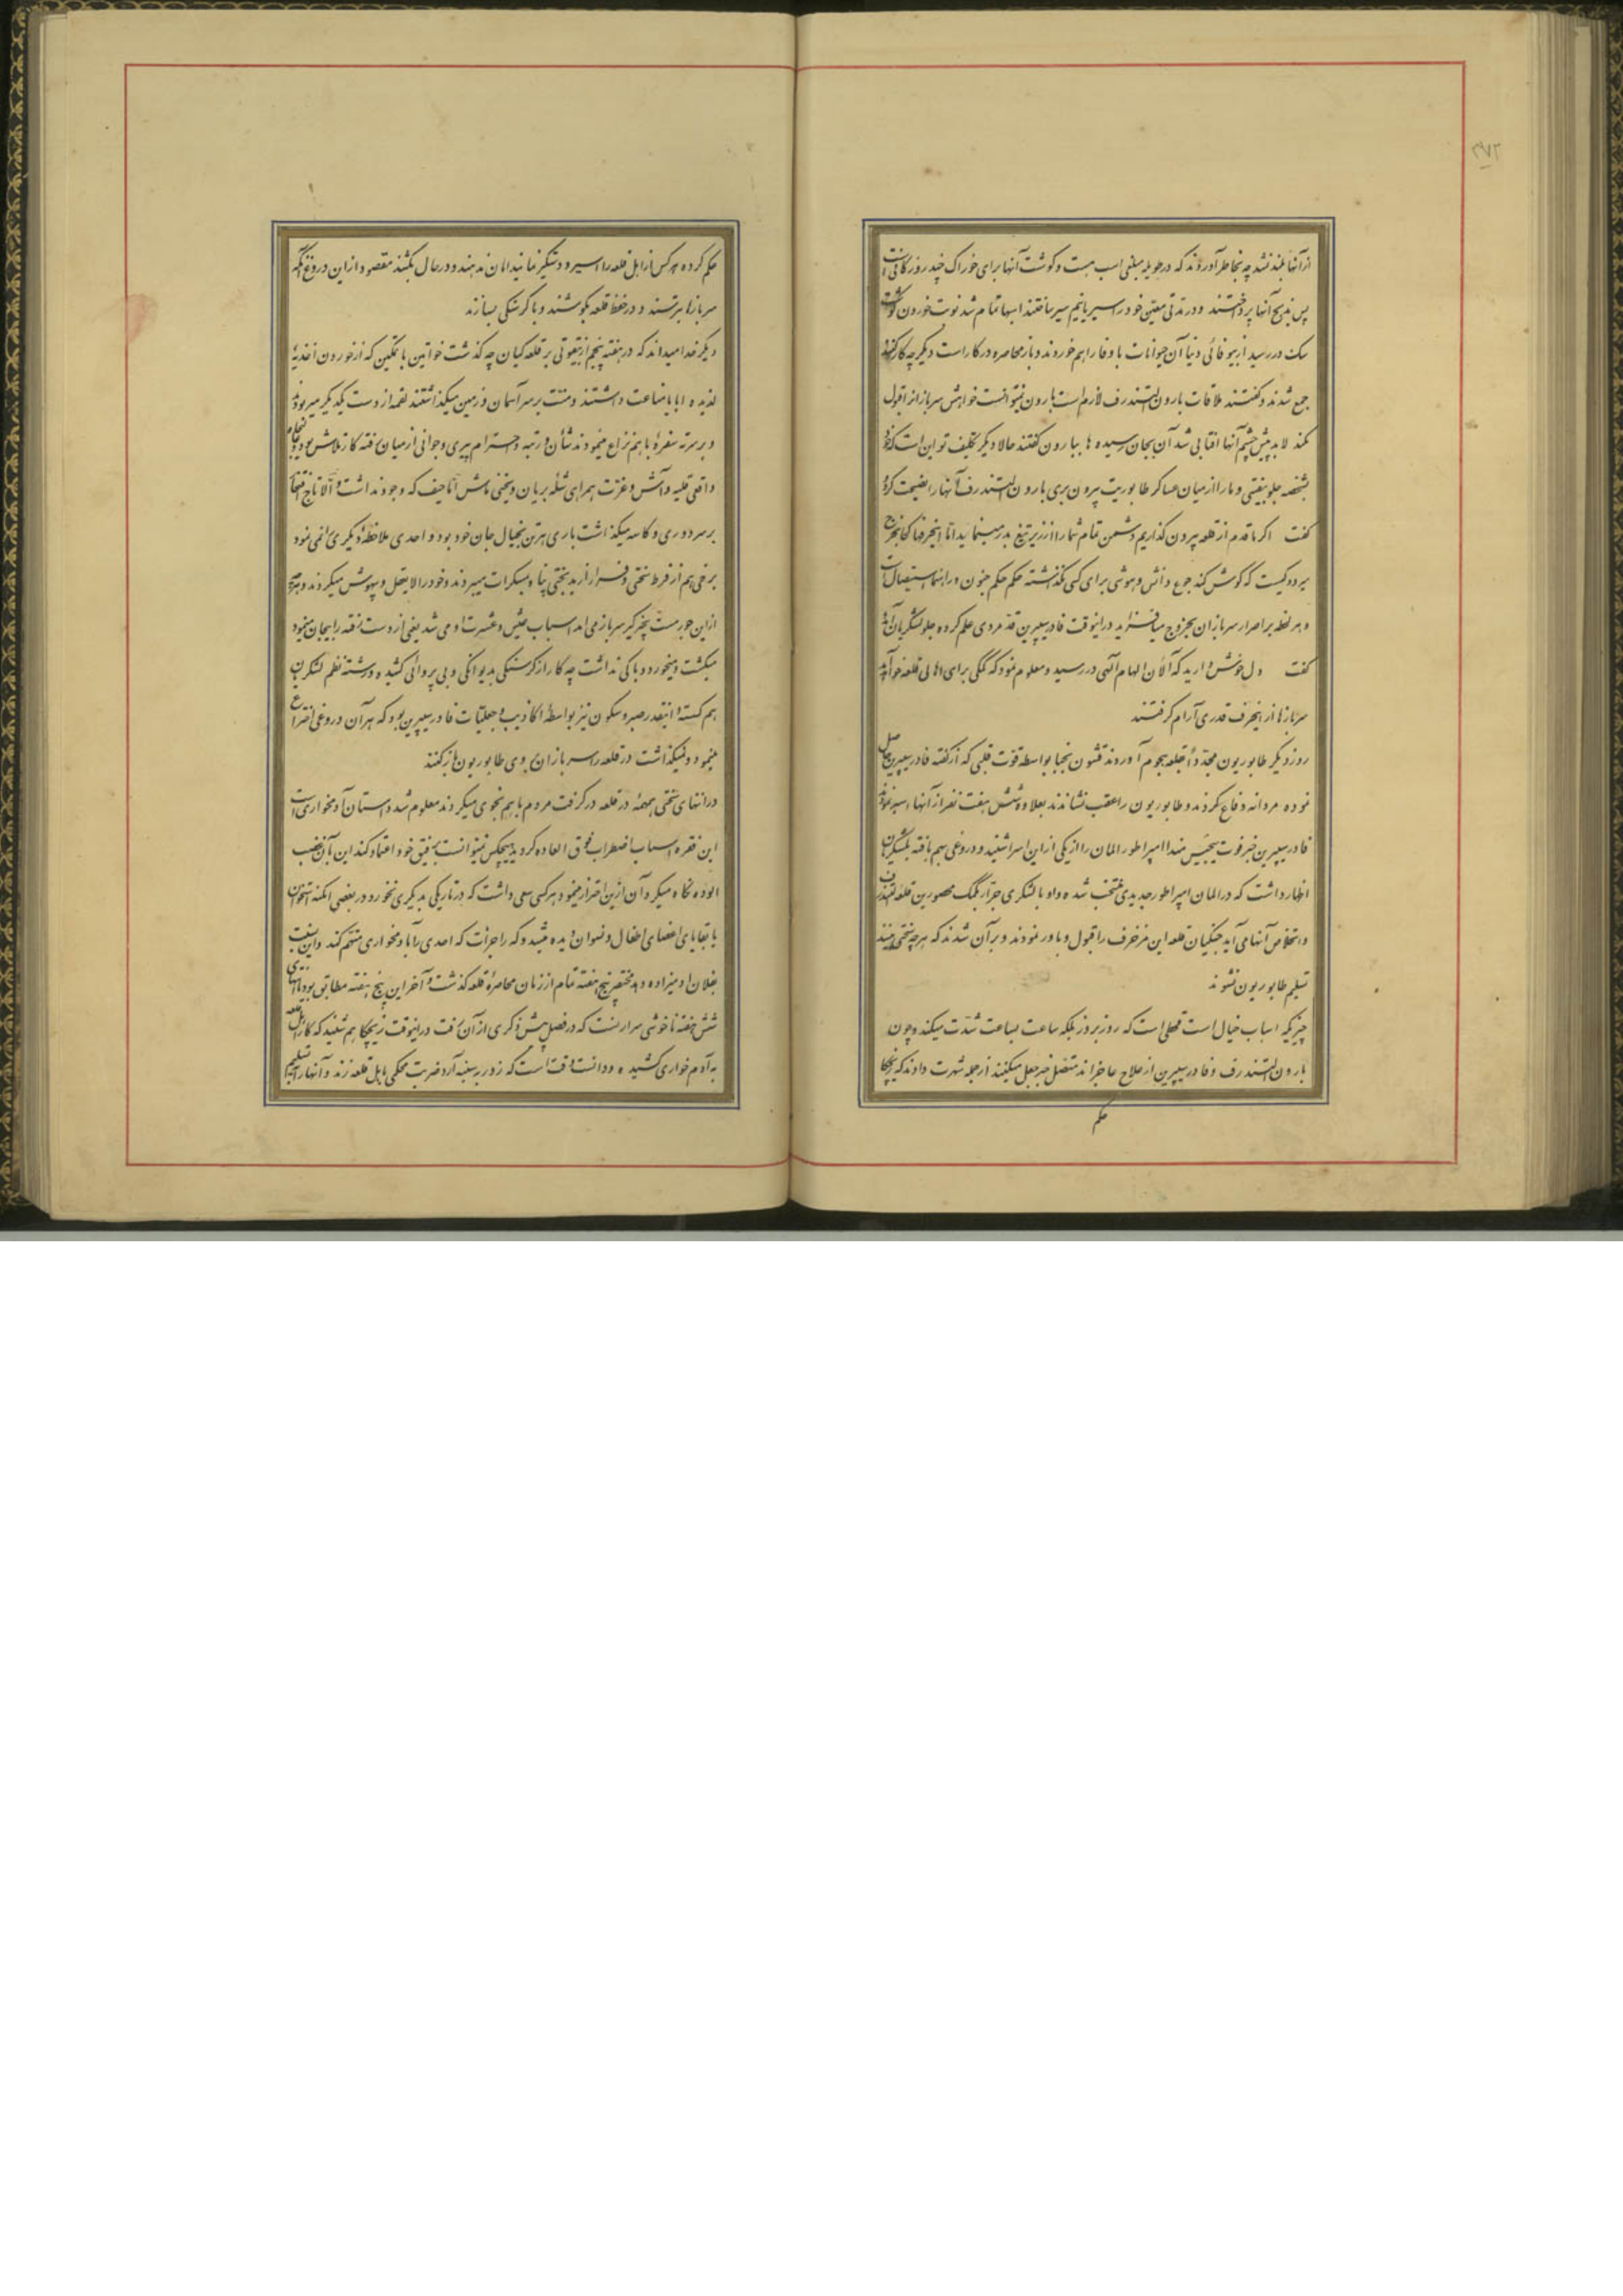 ۲۷۲
از آنها بلند نشد چه بخاطر آوردند که در طویله مبلغی اسب هست و گوشت آنها برای خوراک چند روز کافی است
پس بذبح آنها پرداختند و در مدتی معین خود را سیر یا نیم سیر ساختند اسبها تمام شد نوبت خوردن گوشت
سک در رسید از بیوفائی دنیا آن حیوانات با وفا را هم خوردند و باز محاصره در کار است دیگر چه کار کنند
جمع شدند و گفتند ملاقات بارون لازم است بارون نتوانست خواهش سربازانرا قبول
نکند لابد پیش چشم آنها آفتابی شد آن بجان رسیده ها ببارون گفتند حالا دیگر تکلیف تو این است که خود
بشخصه جلو بیفتی و ما را از میان عساکر طابوریت بیرون بری بارون آنها را نصیحت کرد
گفت اگر ما قدم از قلعه بیرون گذاریم دشمن تمام شما را از زیر تیغ بدر مینماید اما اینحرفها کجا بخرج
میرود کیست که گوش کند جوع دانش و هوشی برای کسی نگذاشته حکم حکم جنون و راهنما استیصال است
و هر لحظه بر اصرار سربازان بخروج میافزاید در اینوقت فادر سپرین قد مردی علم کرده جلو لشگریان آمد
گفت دل خوش دارید که الآن الهام الهی در رسید و معلوم نمود که کمکی برای اهالی قلعه خواهد آمد
سربازها از اینحرف قدری آرام گرفتند
روز دیگر طابوریون مجدداً بقلعه هجوم آوردند قشون نجبا بواسطه قوت قلبی که از گفته فادر سپرین حاصل
نموده مردانه دفاع کردند و طابوریون را عقب نشاندند بعلاوه شش هفت نفر از آنها اسیر نمودند
فادر سپرین خبر فوت سیجیسمند امپراطور المان را از یکی از این اسرا شنید و دروغی بهم بافته بلشگریان
اظهار داشت که در المان امپراطور جدیدی منتخب شده و او با لشکری جرار بکمک محصورین قلعه
و استخلاص آنها می آید جنگیان قلعه این مزخرف را قبول و باور نمودند و بر آن شدند که هر چه سختی بینند
تسلیم طابوریون نشوند
چیزیکه اسباب خیال است قحطی است که روز بروز بلکه ساعت بساعت شدت میکند و چون
بارون و فادر سپرین از علاج عاجزاند متصل خبر جعل میکنند از جمله شهرت دادند که زیچکا
حکم
حکم کرده هر کس از اهل قلعه را اسیر و دستگیر نمایند امان ندهند و در حال بکشند مقصود از این دروغ آنکه
سربازها بترسند و در حفظ قلعه بکوشند و با گرسنگی بسازند
دیگر خدا میداند که در هفته پنجم از بیقوتی بر قلعه کیان چه گذشت خواتین با تمکین که از خوردن اغذیه
لذیذه ابا یا مناعت داشتند و منت بر سر آسمان و زمین میگذاشتند لقمه از دست یکدیگر میربودند
و بر سر ته سفره با هم نزاع مینمودند شأن و رتبه و احترام پیری و جوانی از میان رفته کار تلاش بود
واقعی قلیه و آش و عزت همراهی شله بریان و یخنی ماش اما حیف که وجود نداشت و الا تاج
بر سر دوری و کاسه میگذاشت باری هر تن بخیال جان خود بود و احدی ملاحظه دیگریرا نمی نمود
برخی هم از فرط سختی و فرار از بدبختی پناه بمسکرات میبردند و خود را لایعقل و بیهوش میکردند و هر چه
از این خمر مست گیر سرباز می آمد اسباب عیش و عشرت او می شد یعنی از دست رفته را بیجان مینمود
میکشت و میخورد و باکی نداشت چه کار از گرسنگی بدیوانگی و بی پروائی کشیده و رشته نظم لشکریان
هم گسسته اینقدر صبر و سکون نیز بواسطه اکاذیب و جعلیات فادر سپرین بود که هر آن دروغی اختراع
مینمود و نمیگذاشت در قلعه را سربازان بروی طابوریون باز کنند
در انتهای سختی همهمه در قلعه در گرفت مردم با هم نجوی میکردند معلوم شد داستان آدمخواری است
این فقره اسباب اضطراب فوق العاده گردید هیچکس نمیتوانست برفیق خود اعتماد کند این بآن بغضب
آلوده نگاه میکرد آن از این احتراز مینمود هر کسی سعی داشت که در تاریکی بدیگری نخورد در بعضی امکنه استخوان
یا بقایای اعضای اطفال و نسوان دیده میشد و که را جرأت که احدی را بآدمخواری متهم کند و این نسبت
بفلان ادمیزاده دهد مختصر پنج هفته تمام از زمان محاصره قلعه گذشت و آخر این پنج هفته مطابق بود با انتهای
شش هفته ناخوشی مرارنست که در فصل پیش ذکری از آن رفت در اینوقت زیچکا هم شنید که کار اهل قلعه
به آدم خواری کشیده و دانست وقت است که زور بر سر پنبه آرد ضربت محکمی باهل قلعه زند و آنها را تسلیم